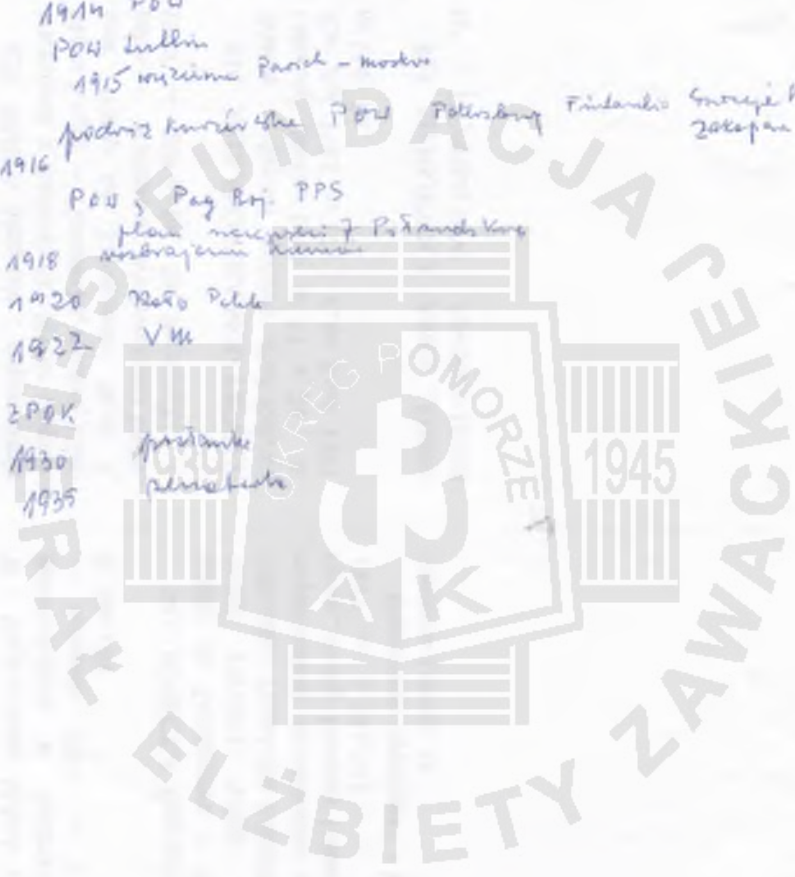 1914 POW
POW Lublin
1915 więzienie Pawiak - Moskwa
podróż kurierska POW Petersburg Finlandia Szwecja
Zakopane
1916
POW, Pog Boj. PPS
plan
1918 rozbrajanie
1920 Koło Polek
1922 VM
ZPOK
1930 posłanka
1935 senatorka
FUNDACJA GENERAŁ ELŻBIETY ZAWACKIEJ
OKRĘG POMORZE
1939 1945
AK